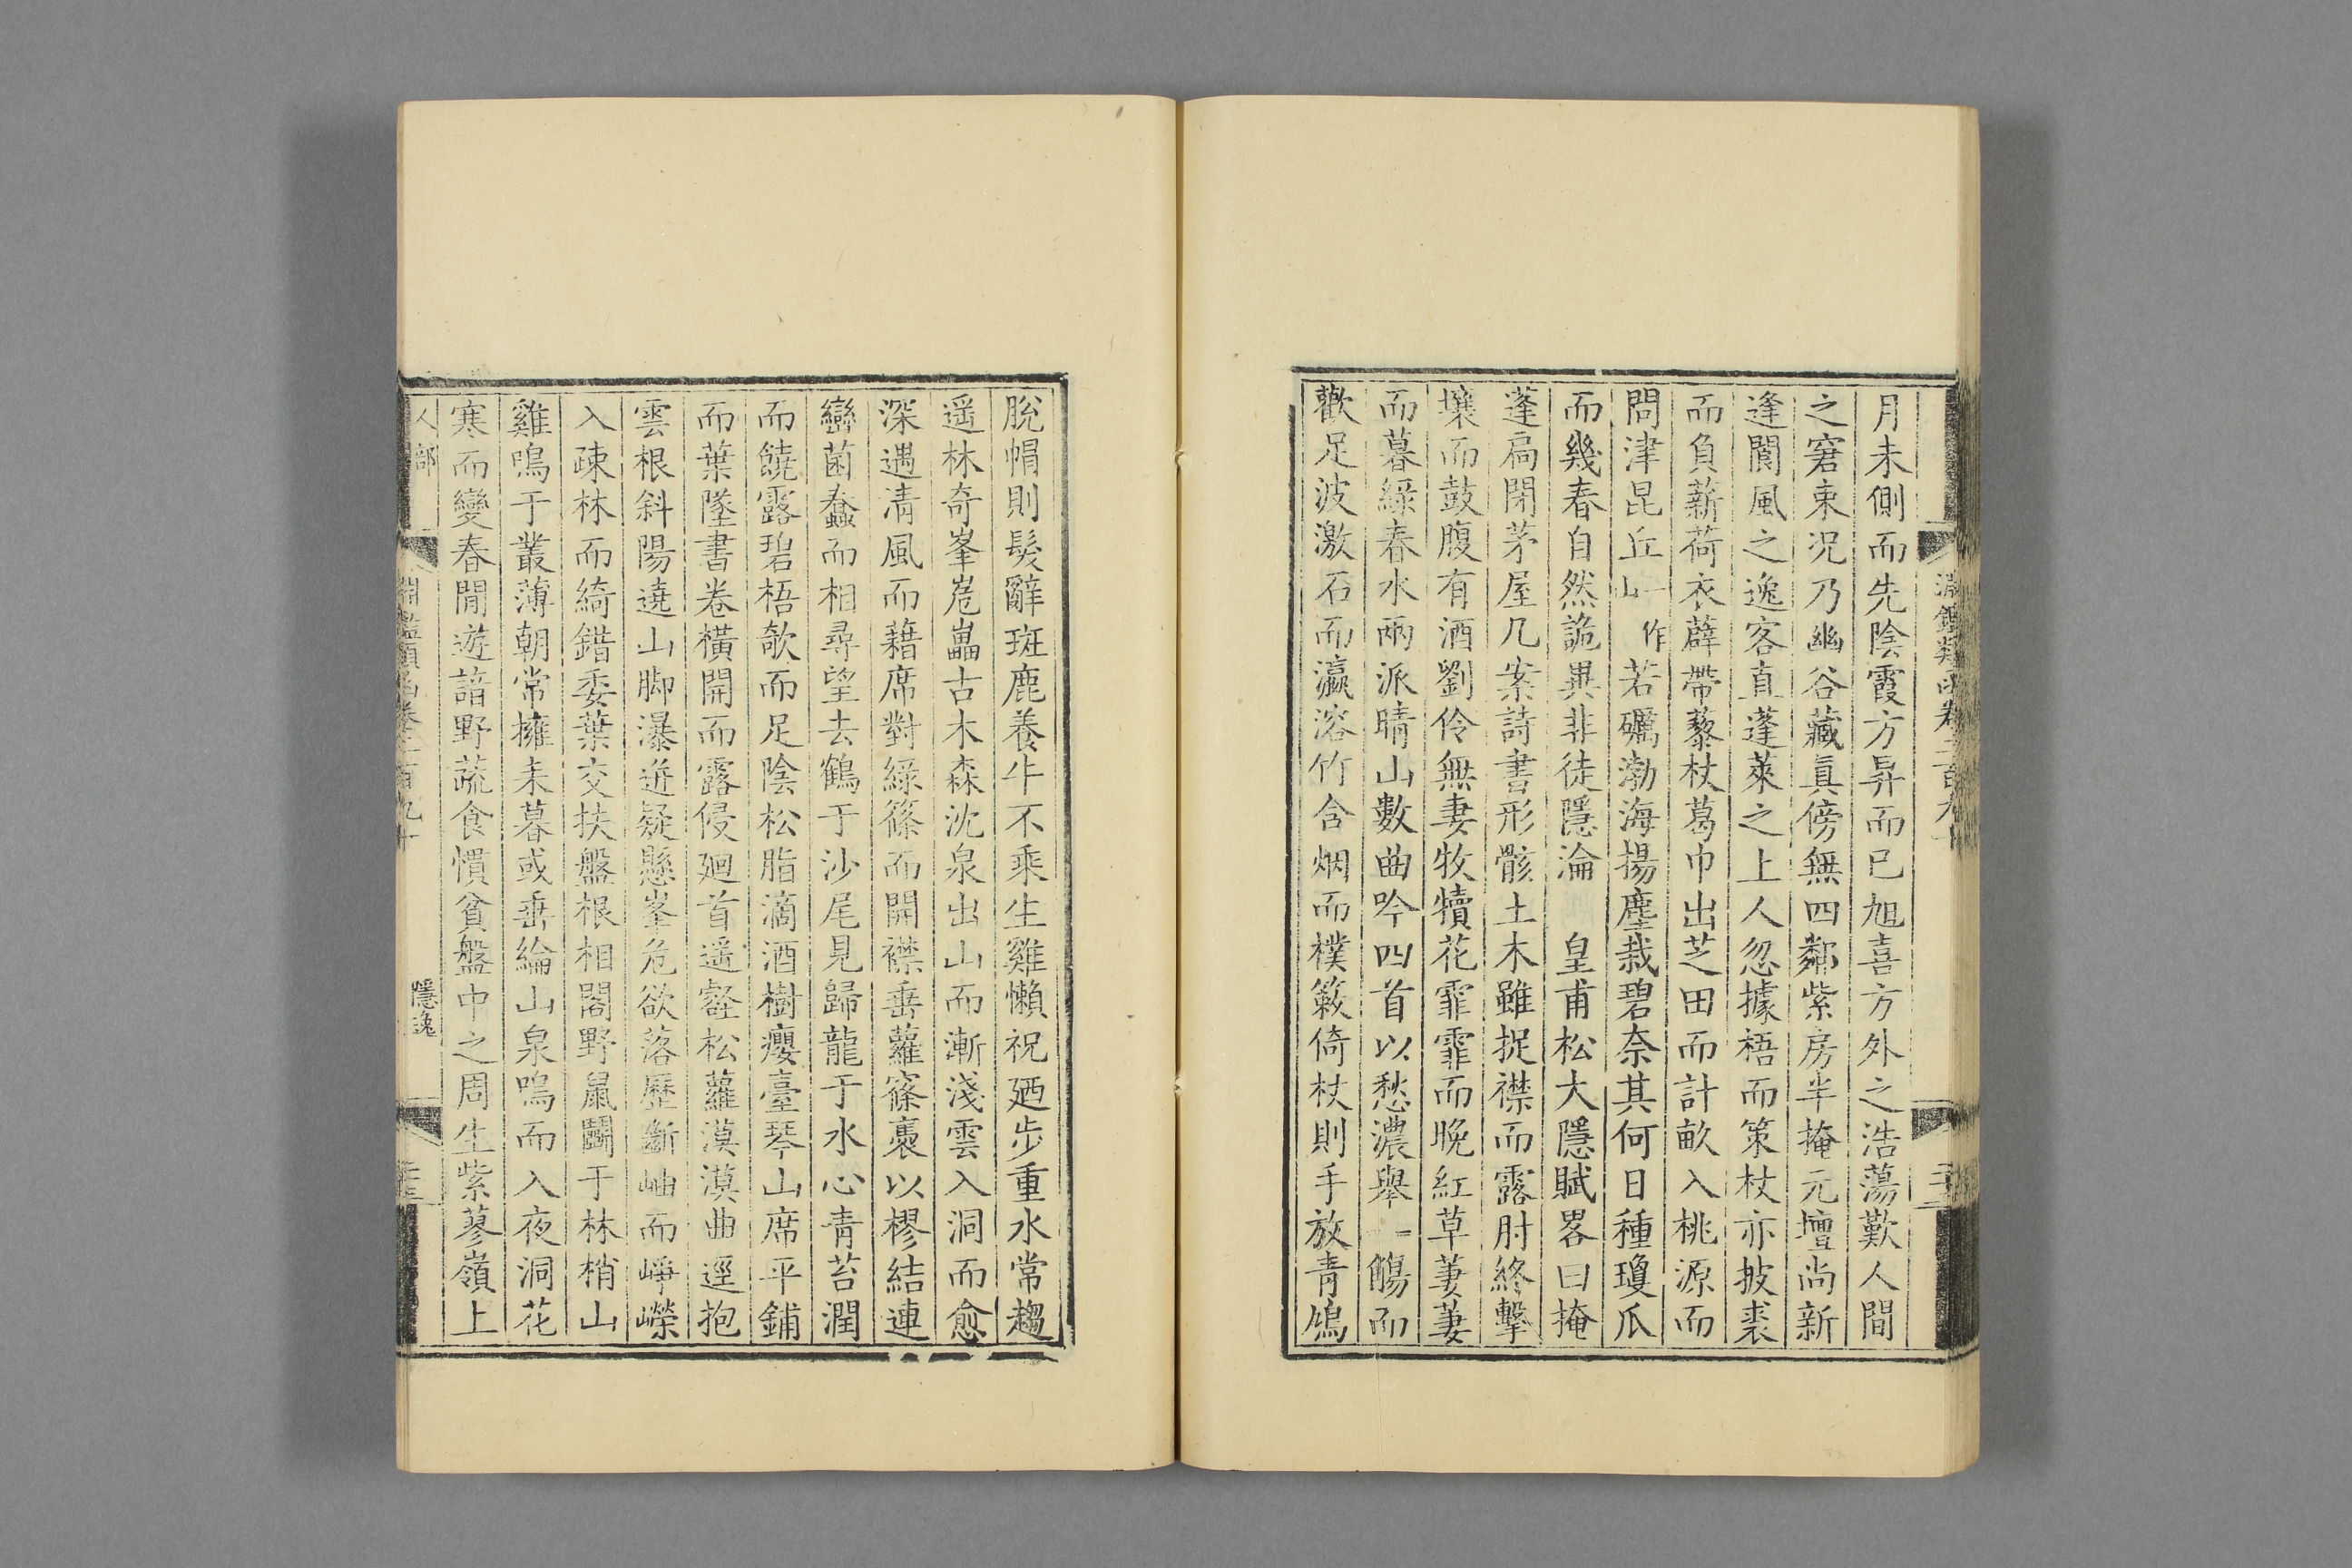 淵鑑類函卷二百九十
月未側而先陰霞方昇而已旭喜方外之浩蕩歎人間
之窘束況乃幽谷藏眞傍無四鄰紫房半掩元壇尚新
逢閬風之逸客直蓬萊之上人忽據梧而策杖亦披裘
而負薪荷衣薜帶藜杖葛巾出芝田而計畝入桃源而
問津昆丘一作山若礪渤海揚塵栽碧奈其何日種瓊瓜
而幾春自然詭異非徒隱淪 皇甫松大隱賦畧曰掩
蓬扃閉茅屋几案詩書形骸土木雖捉襟而露肘終擊
壤而鼓腹有酒劉伶無妻牧犢花霏霏而晚紅草萋萋
而暮綠春水兩派晴山數曲吟四首以愁濃舉一觴而
歡足波激石而瀛溶竹含烟而樸簌倚杖則手放青鳩
脫帽則髮辭斑鹿養牛不乘生雞懶祝廼步重水常趨
遥林奇峯嵬嵓古木森沈泉出山而漸淺雲入洞而愈
深遇清風而藉席對綠篠而開襟垂蘿窱裹以樛結連
巒菌蠢而相尋望去鶴于沙尾見歸龍于水心青苔潤
而饒露碧梧欹而足陰松脂滴酒樹癭臺琴山席平鋪
而葉墜書卷橫開而露侵廻首遥壑松蘿漠漠曲逕抱
雲根斜陽遶山脚瀑迸疑懸峯危欲落歷斷岫而崢嶸
入疎林而綺錯委葉交扶盤根相閣野鼠鬭于林梢山
雞鳴于叢薄朝常擁耒暮或垂綸山泉鳴而入夜洞花
寒而變春閒遊諳野蔬食慣貧盤中之周生紫蓼嶺上
人部 淵鑑類函卷二百九十 隱逸